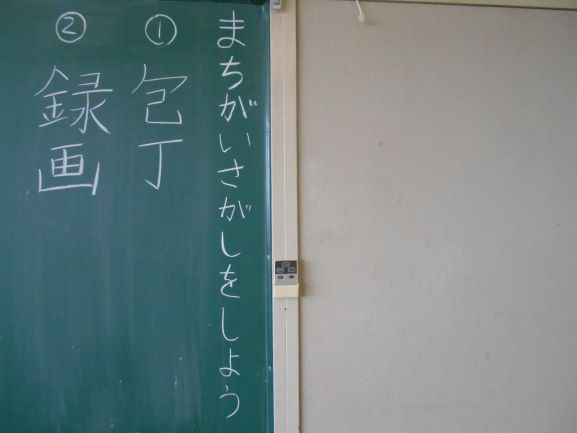 まちがいさがしをしよう
① 包丁
② 録画